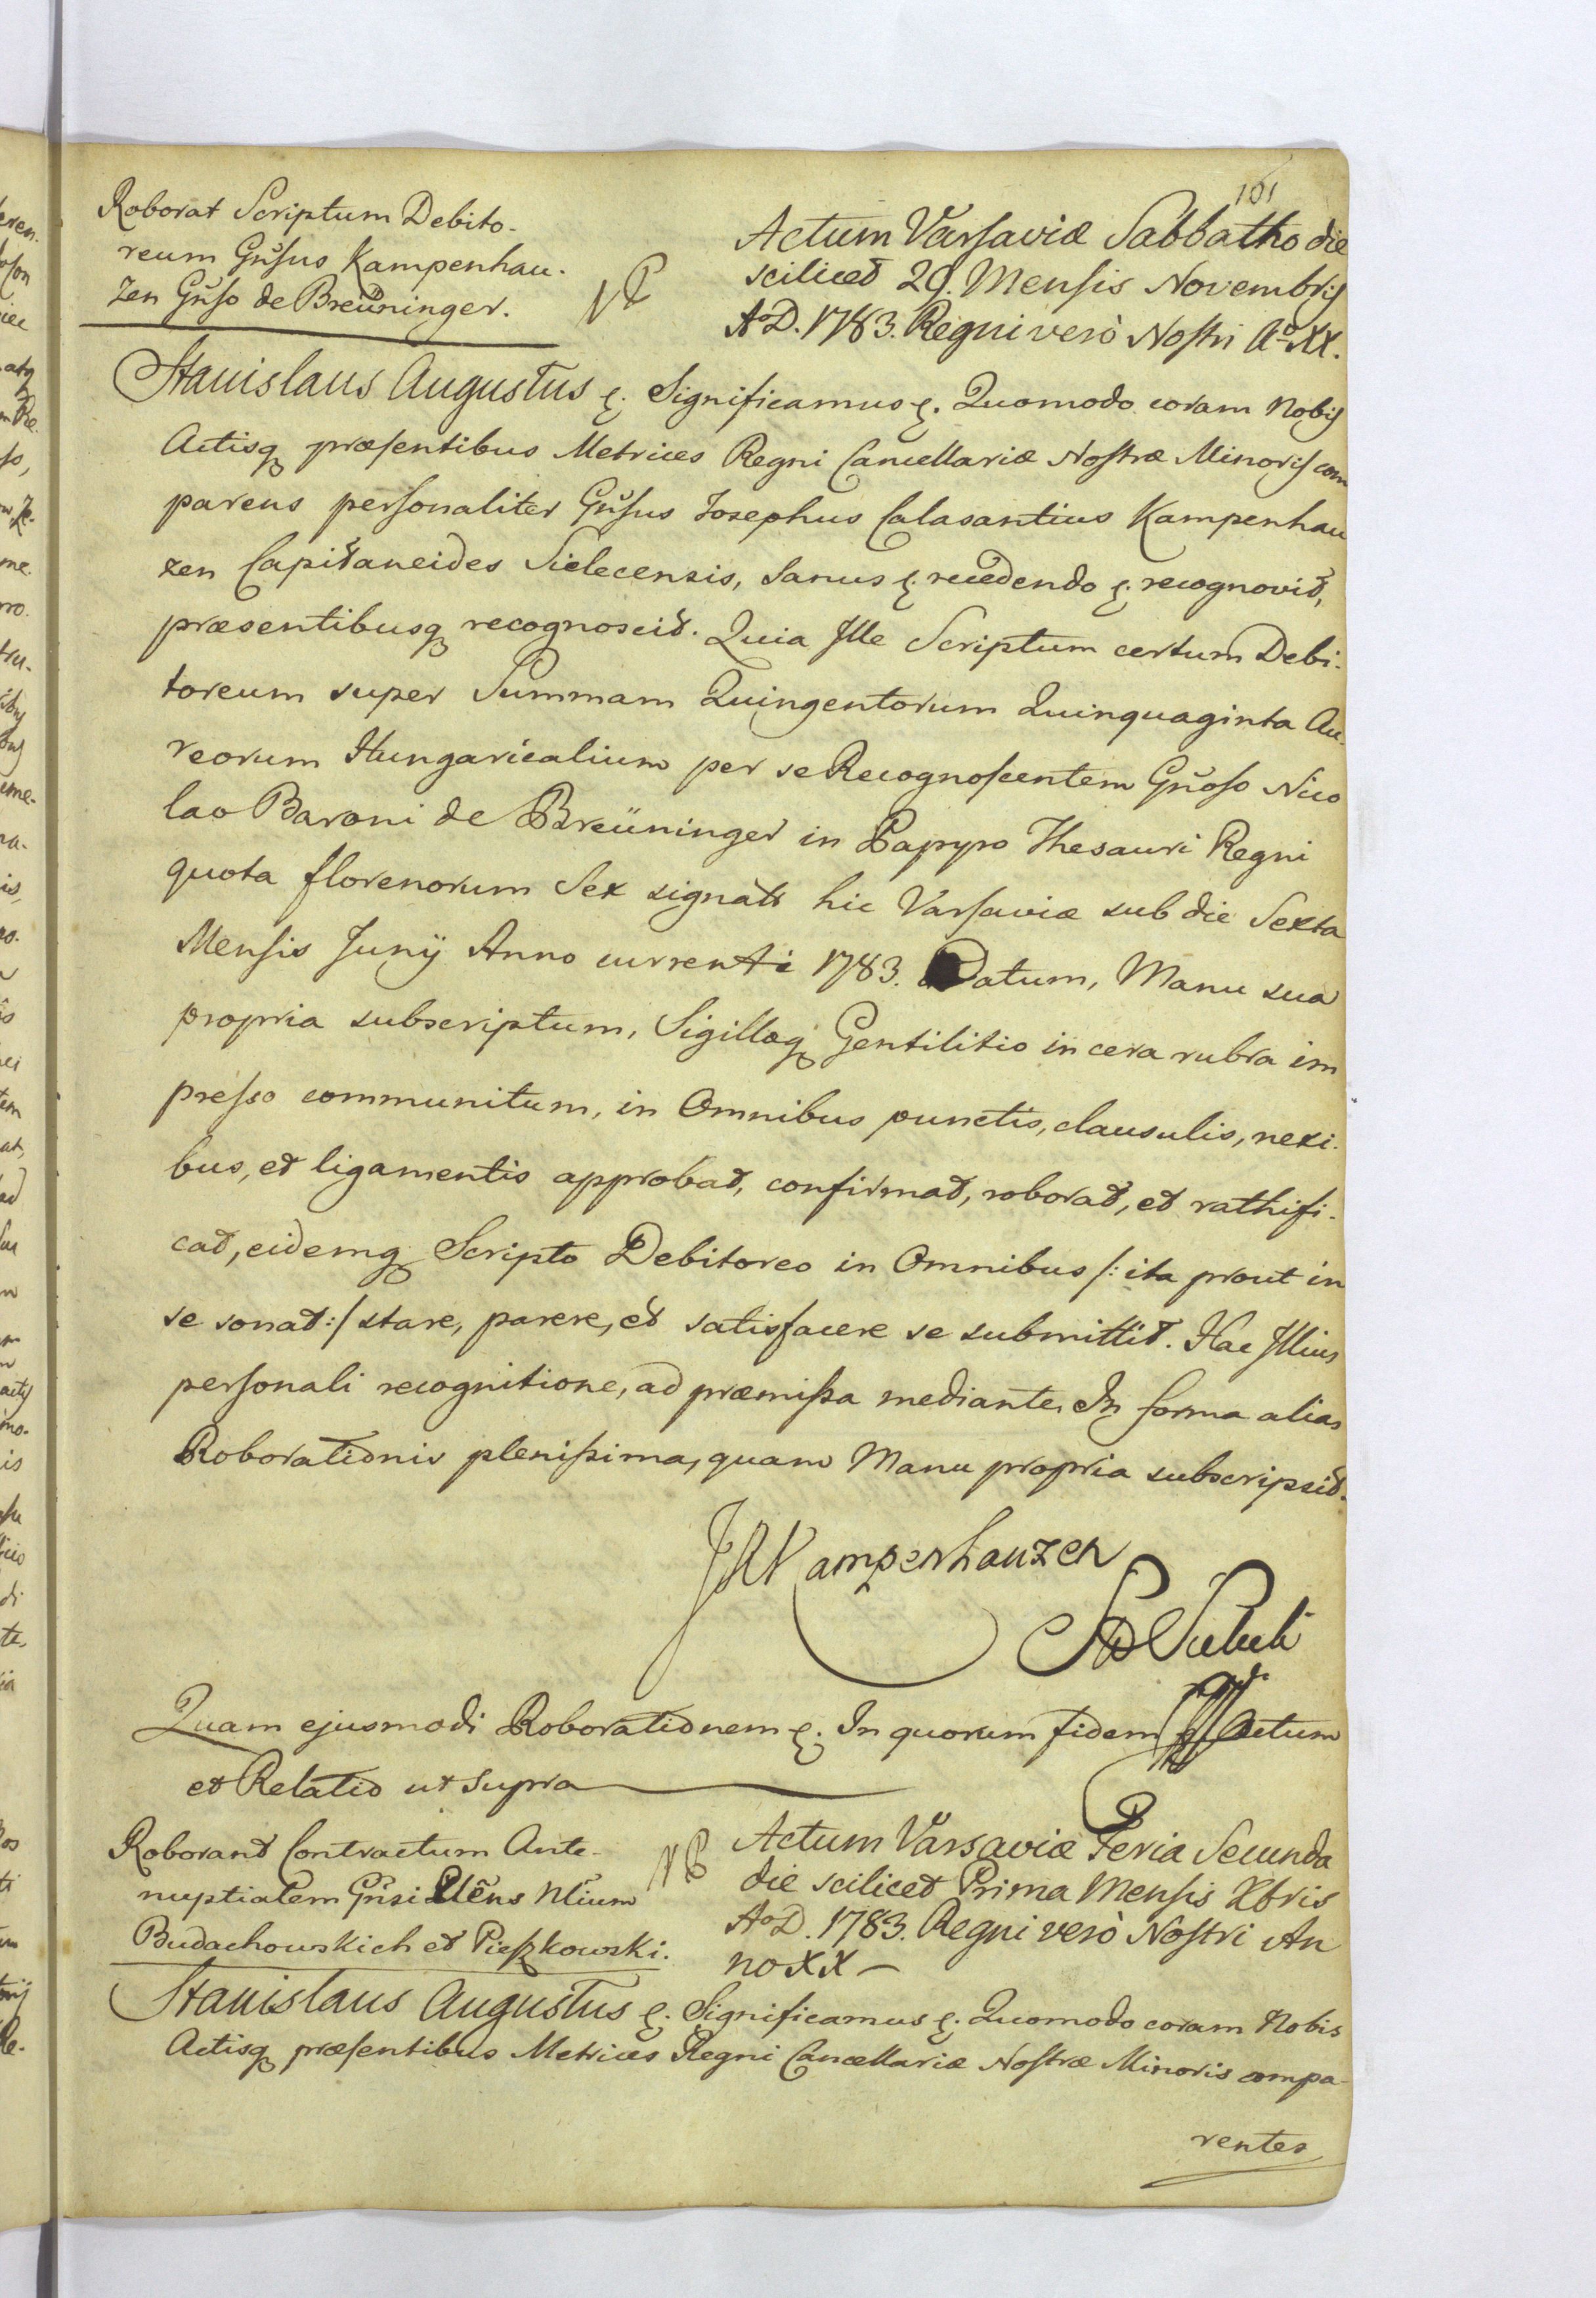 101
Roborat Scriptum Debito-
reum Gnsus Kampenhau-
zen Gnso de Breüninger.
NP
Actum Varsaviæ Sabbatho die
scilicet 29. Mensis Novembris
AoD. 1783. Regni verò Nostri Ao XX.
Stanislaus Augustus &. Significamus &. Quomodo coram Nobis
Actisq præsentibus Metrices Regni Cancellariæ Nostræ Minoris com
parens personaliter Gnsus Josephus Calasantius Kampenhau
zen Capitaneides Sielecensis, Sanus &. recedendo &. recognovit,
præsentibusq recognoscit. Quia Ille Scriptum certum Debi-
toreum super Summam Quingentorum Quinquaginta Au-
reorum Hungaricalium per se Recognoscentem Gnoso Nico
lao Baroni de Breüninger in Papyro Thesauri Regni
quota florenorum Sex signat hic Varsaviæ sub die Sexta
Mensis Junÿ Anno currenti 1783. Datum, Manu sua
propria subscriptum, Sigilloq Gentilitio in cera rubra im
presso communitum, in Omnibus punctis, clausulis, nexi-
bus, et ligamentis approbat, confirmat, roborat, et rathifi-
cat, eidemq Scripto Debitoreo in Omnibus /: ita prout in
se sonat :/ stare, parere, et satisfacere se submittit. Hac Illius
personali recognitione, ad præmissa mediante, In forma alias
Roborationis plenissima, quam Manu propria subscripsit.
JK Kampenhauzen
Quam ejusmodi Roborationem &. In quorum fidem Actum
et Relatio ut supra
Roborant Contractum Ante-
nuptialem Gnsi Ntium
Budachowskich et Pieszkowski.
NP
Actum Varsaviæ Feria Secunda
die scilicet Prima Mensis Xbris
AoD. 1783. Regni verò Nostri An
no XX -
Stanislaus Augustus &. Significamus &. Quomodo coram Nobis
Actisq præsentibus Metrices Regni Cancellariæ Nostræ Minoris compa-
rentes